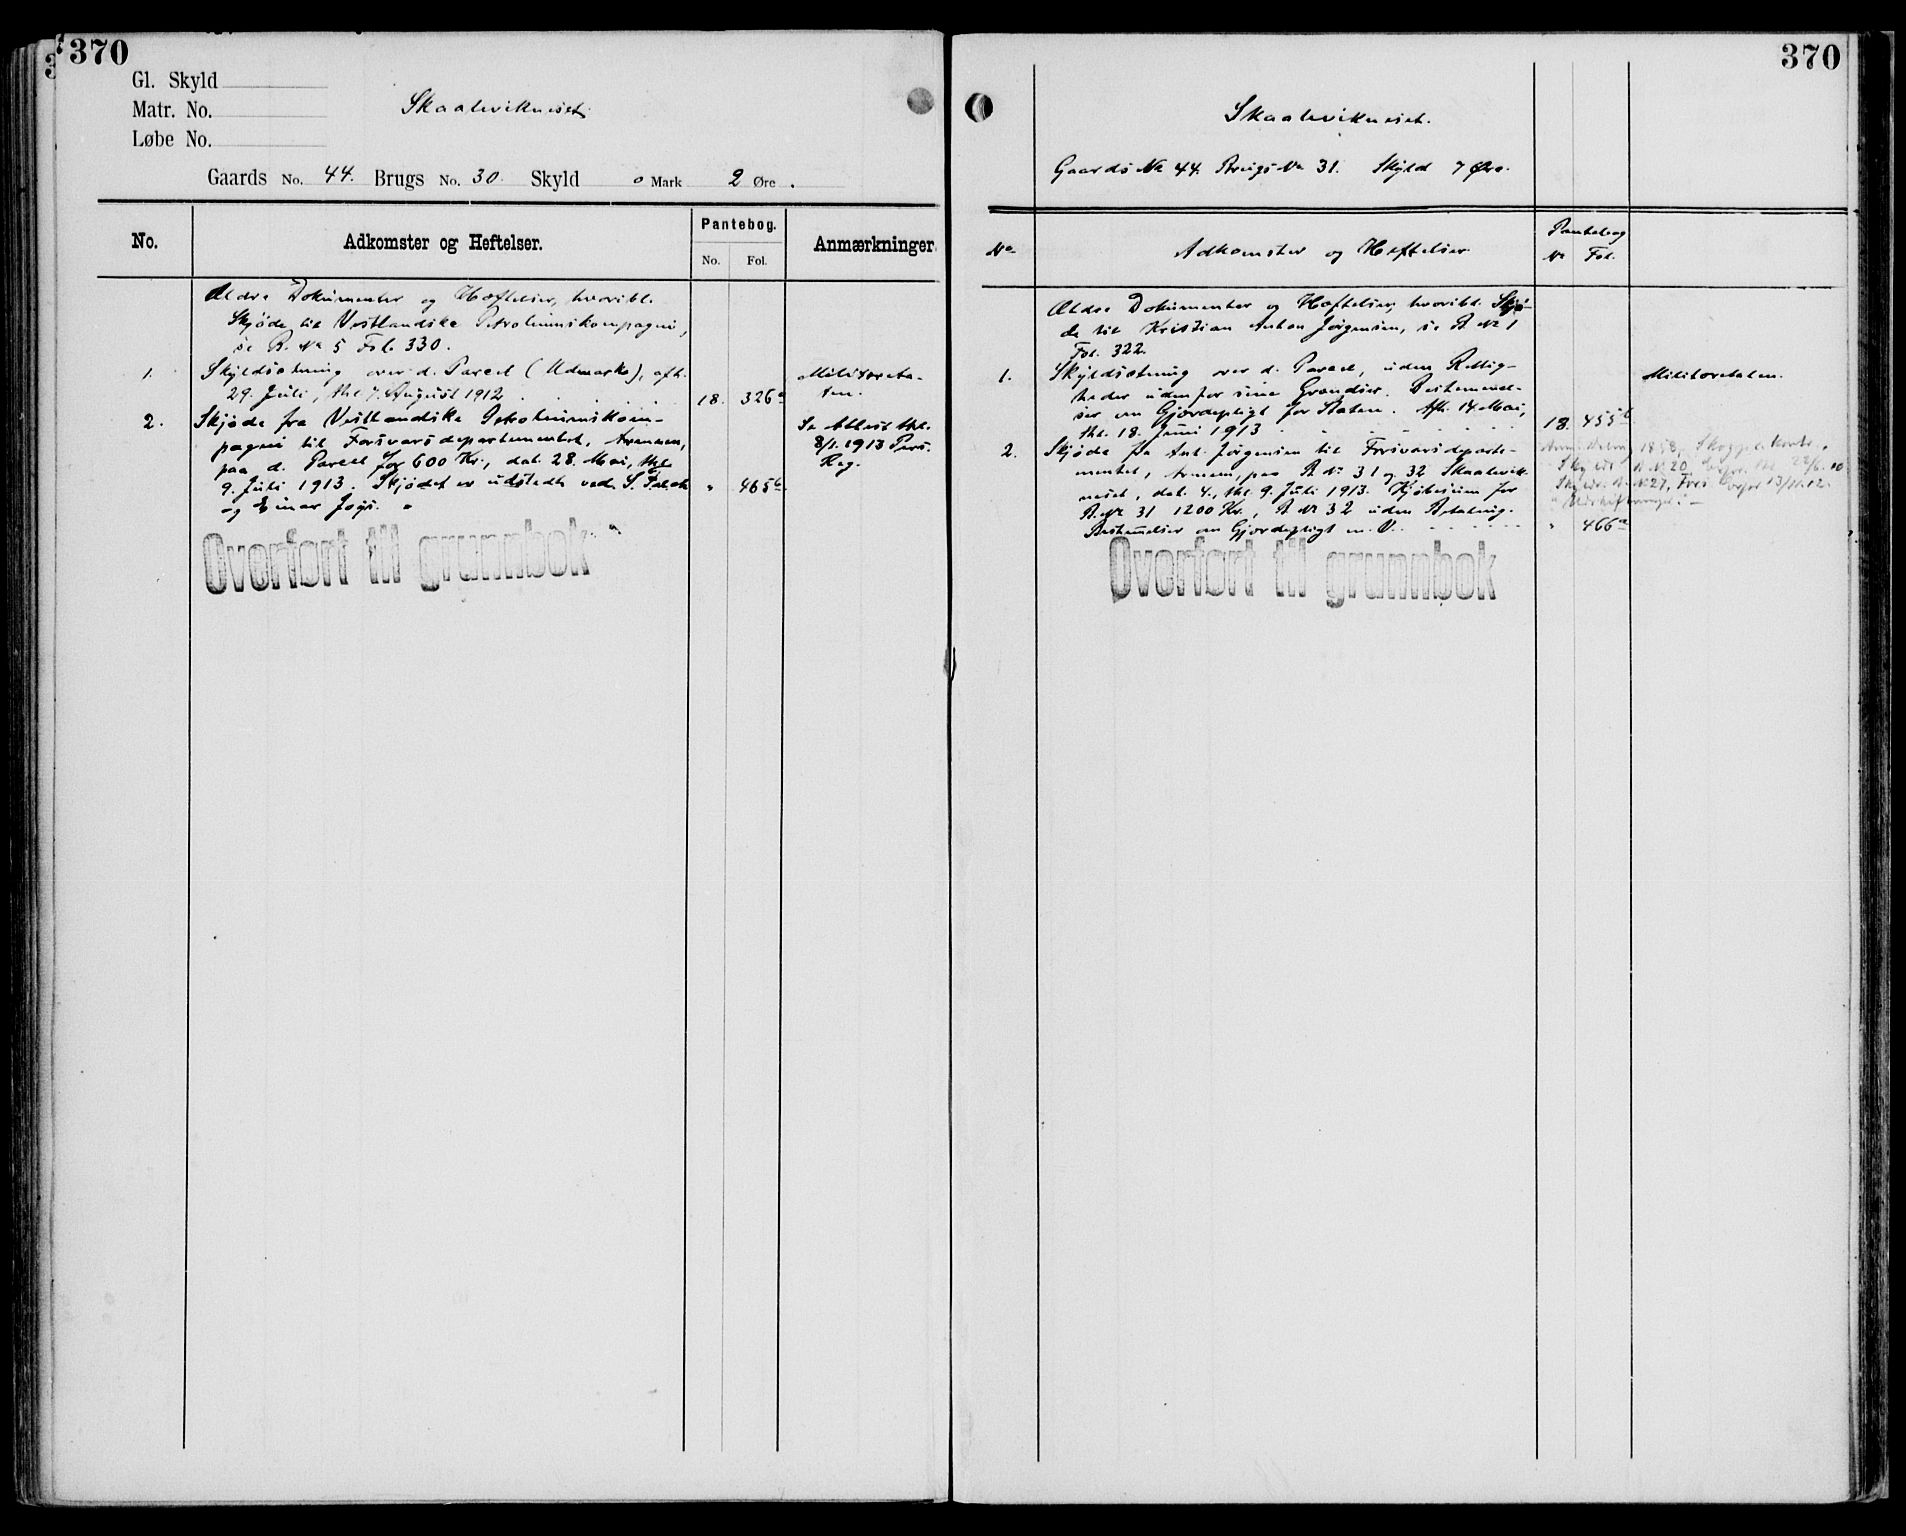 370
Gl. Skyld
Matr. No.
Løbe No.
Skaalevikneset
Gaards No. 44. Brugs No. 30. Skyld 0 Mark 2 Øre.
No.
Adkomster og Heftelser.
Pantebog.
No. Fol.
Anmærkninger
Ældre Dokumenter og Hæftelser, hvoribl.
Skjøde til Vestlandske Petroleumskompagni,
se B. No 5 Fol. 330.
1. Skyldsætning over d. Parcel (Udmark), afh.
29. Juli, thl. 7. August 1912 . . . . 18. 326a
Militæreta-
ten.
2. Skjøde fra Vestlandske Petroleumskom-
pagni til Forsvarsdepartementet, Armeen,
paa d. Parcel for 600 Kr., dat. 28. Mai, thl.
9. Juli 1913. Skjødet er udstedt ved S. Falck " 465b
og Einar Jogs. "
Se Attest thl.
8/1. 1913 Pers.
Reg.
Overført til grunnbok
370
Skaalevikneset.
Gaards No 44. Brugs No 31. Skyld 7 Øre.
No
Adkomster og Hæftelser
Pantebog
No Fol.
Ældre Dokumenter og Hæftelser, hvoribl. Skjø-
de til Kristian Anton Jørgensen, se B No 1
Fol. 322.
1. Skyldsætning over d. Parcel, uden Rettig-
heder udenfor sine Grændser. Bestemmel-
ser om Gjerdepligt for Staten. Afh. 14. Mai,
thl. 18. Juni 1913 . . . . . . 18. 455b
Militæretaten.
2. Skjøde fra Ant. Jørgensen til Forsvarsdeparte-
mentet, Armeen, paa B No 31 og 32 Skaalevik-
neset, dat. 4., thl. 9. Juli 1913. Kjøbesum for
B. No 31 1200 Kr., B No 32 uden Betaling.
Bestemmelser om Gjerdepligt m. V. . . . . . " 466a
1858, Skoggelekontr.
Skylds. B. No 20, thl. 22/6. 10
Skylds. B. No 27, 13/11. 12.
Overført til grunnbok